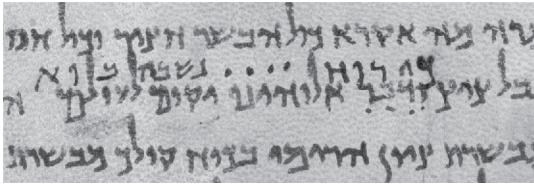 מה אקרא כול הבשר חציר וכול
כי רוח .... נשבה בוא
נבל ציץ ודבר אלוהינו יקום לעולם
מבשרת ציון הרימי בכוח קולך מבשרת